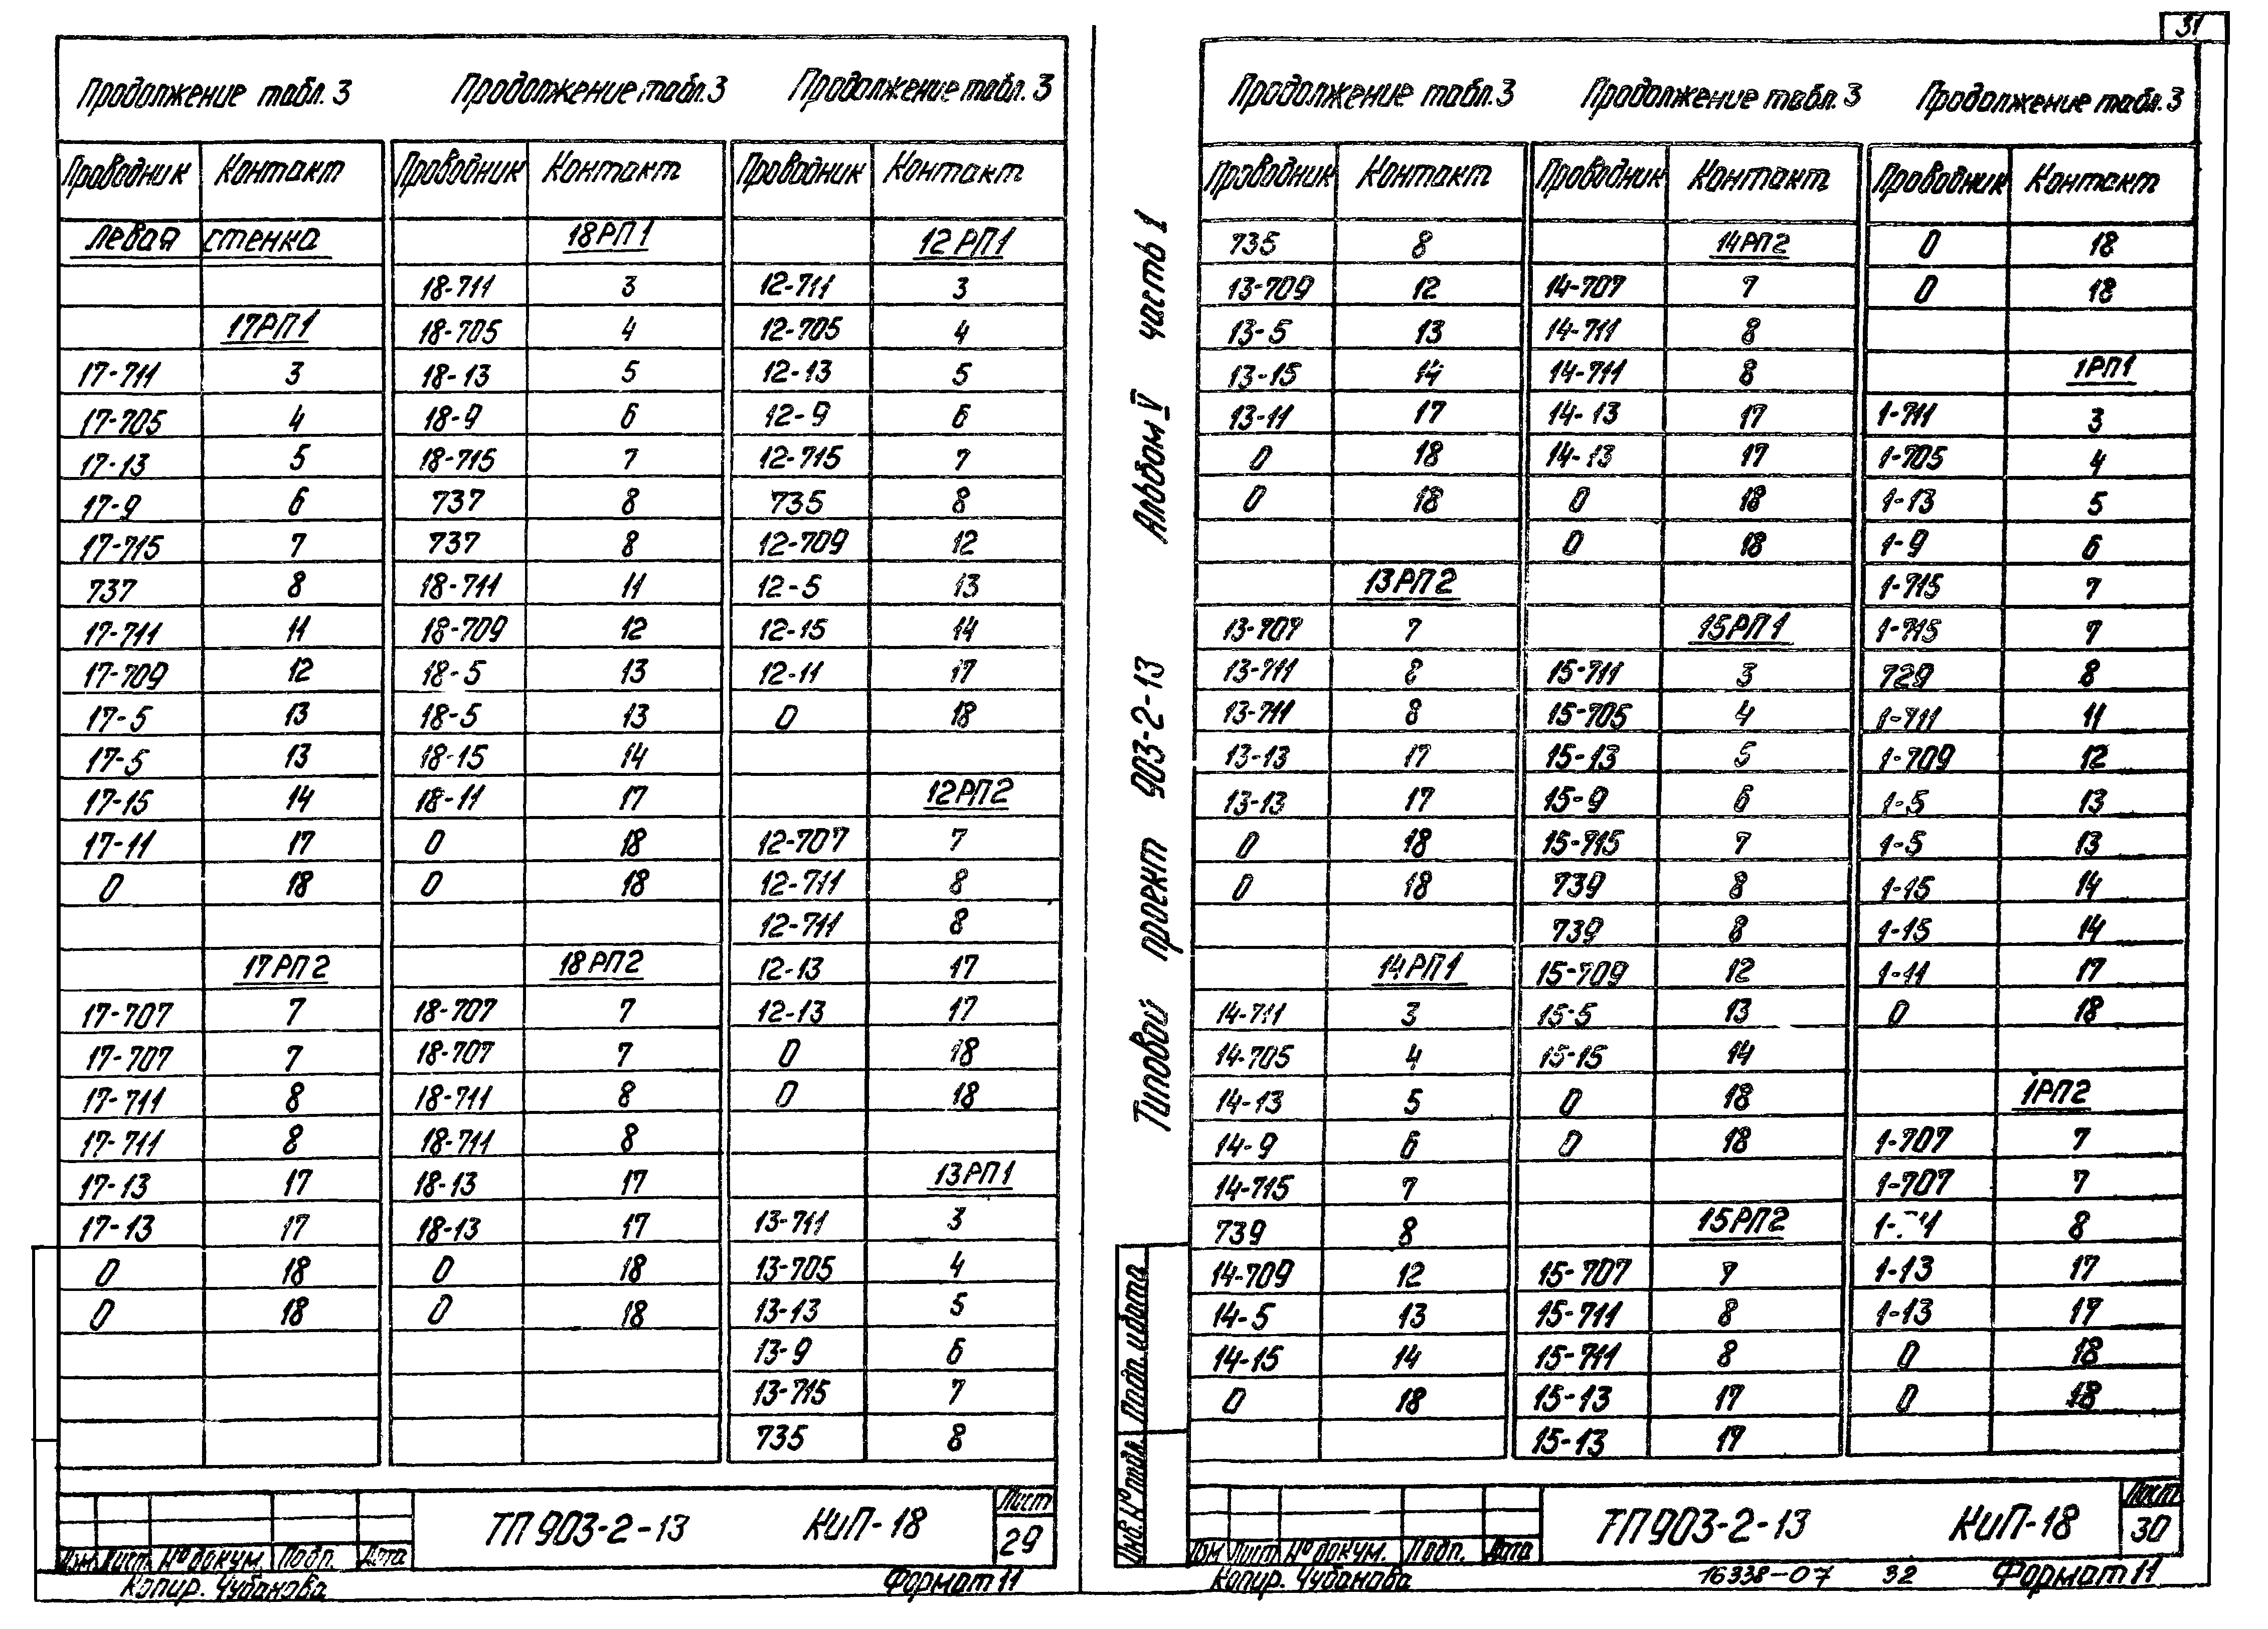 31
Продолжение табл. 3
Проводник Контакт
левая стенка
17РП1
17-711 3
17-705 4
17-13 5
17-9 6
17-715 7
737 8
17-711 11
17-709 12
17-5 13
17-5 13
17-15 14
17-11 17
0 18
17РП2
17-707 7
17-707 7
17-711 8
17-711 8
17-13 17
17-13 17
0 18
0 18
Продолжение табл. 3
Проводник Контакт
18РП1
18-711 3
18-705 4
18-13 5
18-9 6
18-715 7
737 8
737 8
18-711 11
18-709 12
18-5 13
18-5 13
18-15 14
18-11 17
0 18
0 18
18РП2
18-707 7
18-707 7
18-711 8
18-711 8
18-13 17
18-13 17
0 18
0 18
Продолжение табл. 3
Проводник Контакт
12РП1
12-711 3
12-705 4
12-13 5
12-9 6
12-715 7
735 8
12-709 12
12-5 13
12-15 14
12-11 17
0 18
12РП2
12-707 7
12-711 8
12-711 8
12-13 17
12-13 17
0 18
0 18
13РП1
13-711 3
13-705 4
13-13 5
13-9 6
13-715 7
735 8
ТП 903-2-13 КиП-18
Лист
29
Изм. Лист № докум. Подп. Дата
Копир. Чубанова Формат 11
Типовой проект 903-2-13 Альбом V часть 1
Инв. № подл. Подп. и дата
Продолжение табл. 3
Проводник Контакт
735 8
13-709 12
13-5 13
13-15 14
13-11 17
0 18
0 18
13РП2
13-707 7
13-711 8
13-711 8
13-13 17
13-13 17
0 18
0 18
14РП1
14-711 3
14-705 4
14-13 5
14-9 6
14-715 7
739 8
14-709 12
14-5 13
14-15 14
0 18
Продолжение табл. 3
Проводник Контакт
14РП2
14-707 7
14-711 8
14-711 8
14-13 17
14-13 17
0 18
0 18
15РП1
15-711 3
15-705 4
15-13 5
15-9 6
15-715 7
739 8
739 8
15-709 12
15-5 13
15-15 14
0 18
0 18
15РП2
15-707 7
15-711 8
15-711 8
15-13 17
15-13 17
Продолжение табл. 3
Проводник Контакт
0 18
0 18
1РП1
1-711 3
1-705 4
1-13 5
1-9 6
1-715 7
1-715 7
729 8
1-711 11
1-709 12
1-5 13
1-5 13
1-15 14
1-15 14
1-11 17
0 18
1РП2
1-707 7
1-707 7
8
1-13 17
1-13 17
0 18
0 18
ТП 903-2-13 КиП-18
Лист
30
Изм Лист № докум. Подп. Дата
Копир. Чубанова 16338-07 32 Формат 11